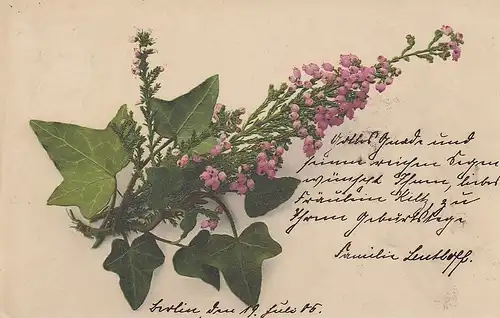 Gottes Gnade und
seinen reichen Segen
wünscht Ihnen, liebes
Fräulein Killy, zu
Ihrem Geburtstage
Familie Lenthoff.
Berlin, den 19. Juli 05.